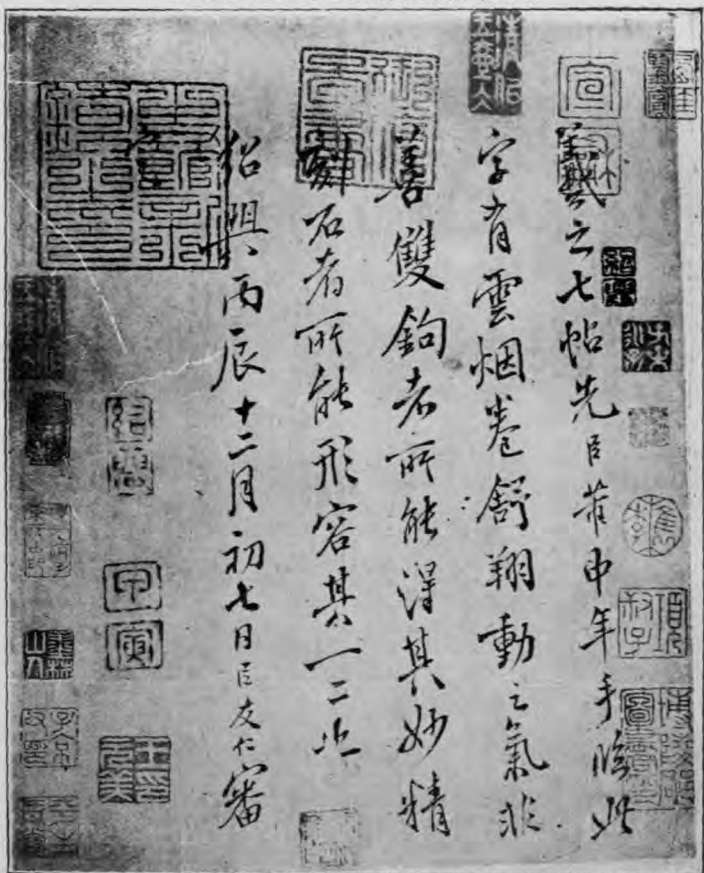 羲之七帖先臣芾中年手臨此
字有雲烟卷舒翔動之氣非
善雙鉤者所能得其妙精
刻石者所能形容其一二也
紹興丙辰十二月初七日臣友仁審
定
項叔子
紹興
甲寅